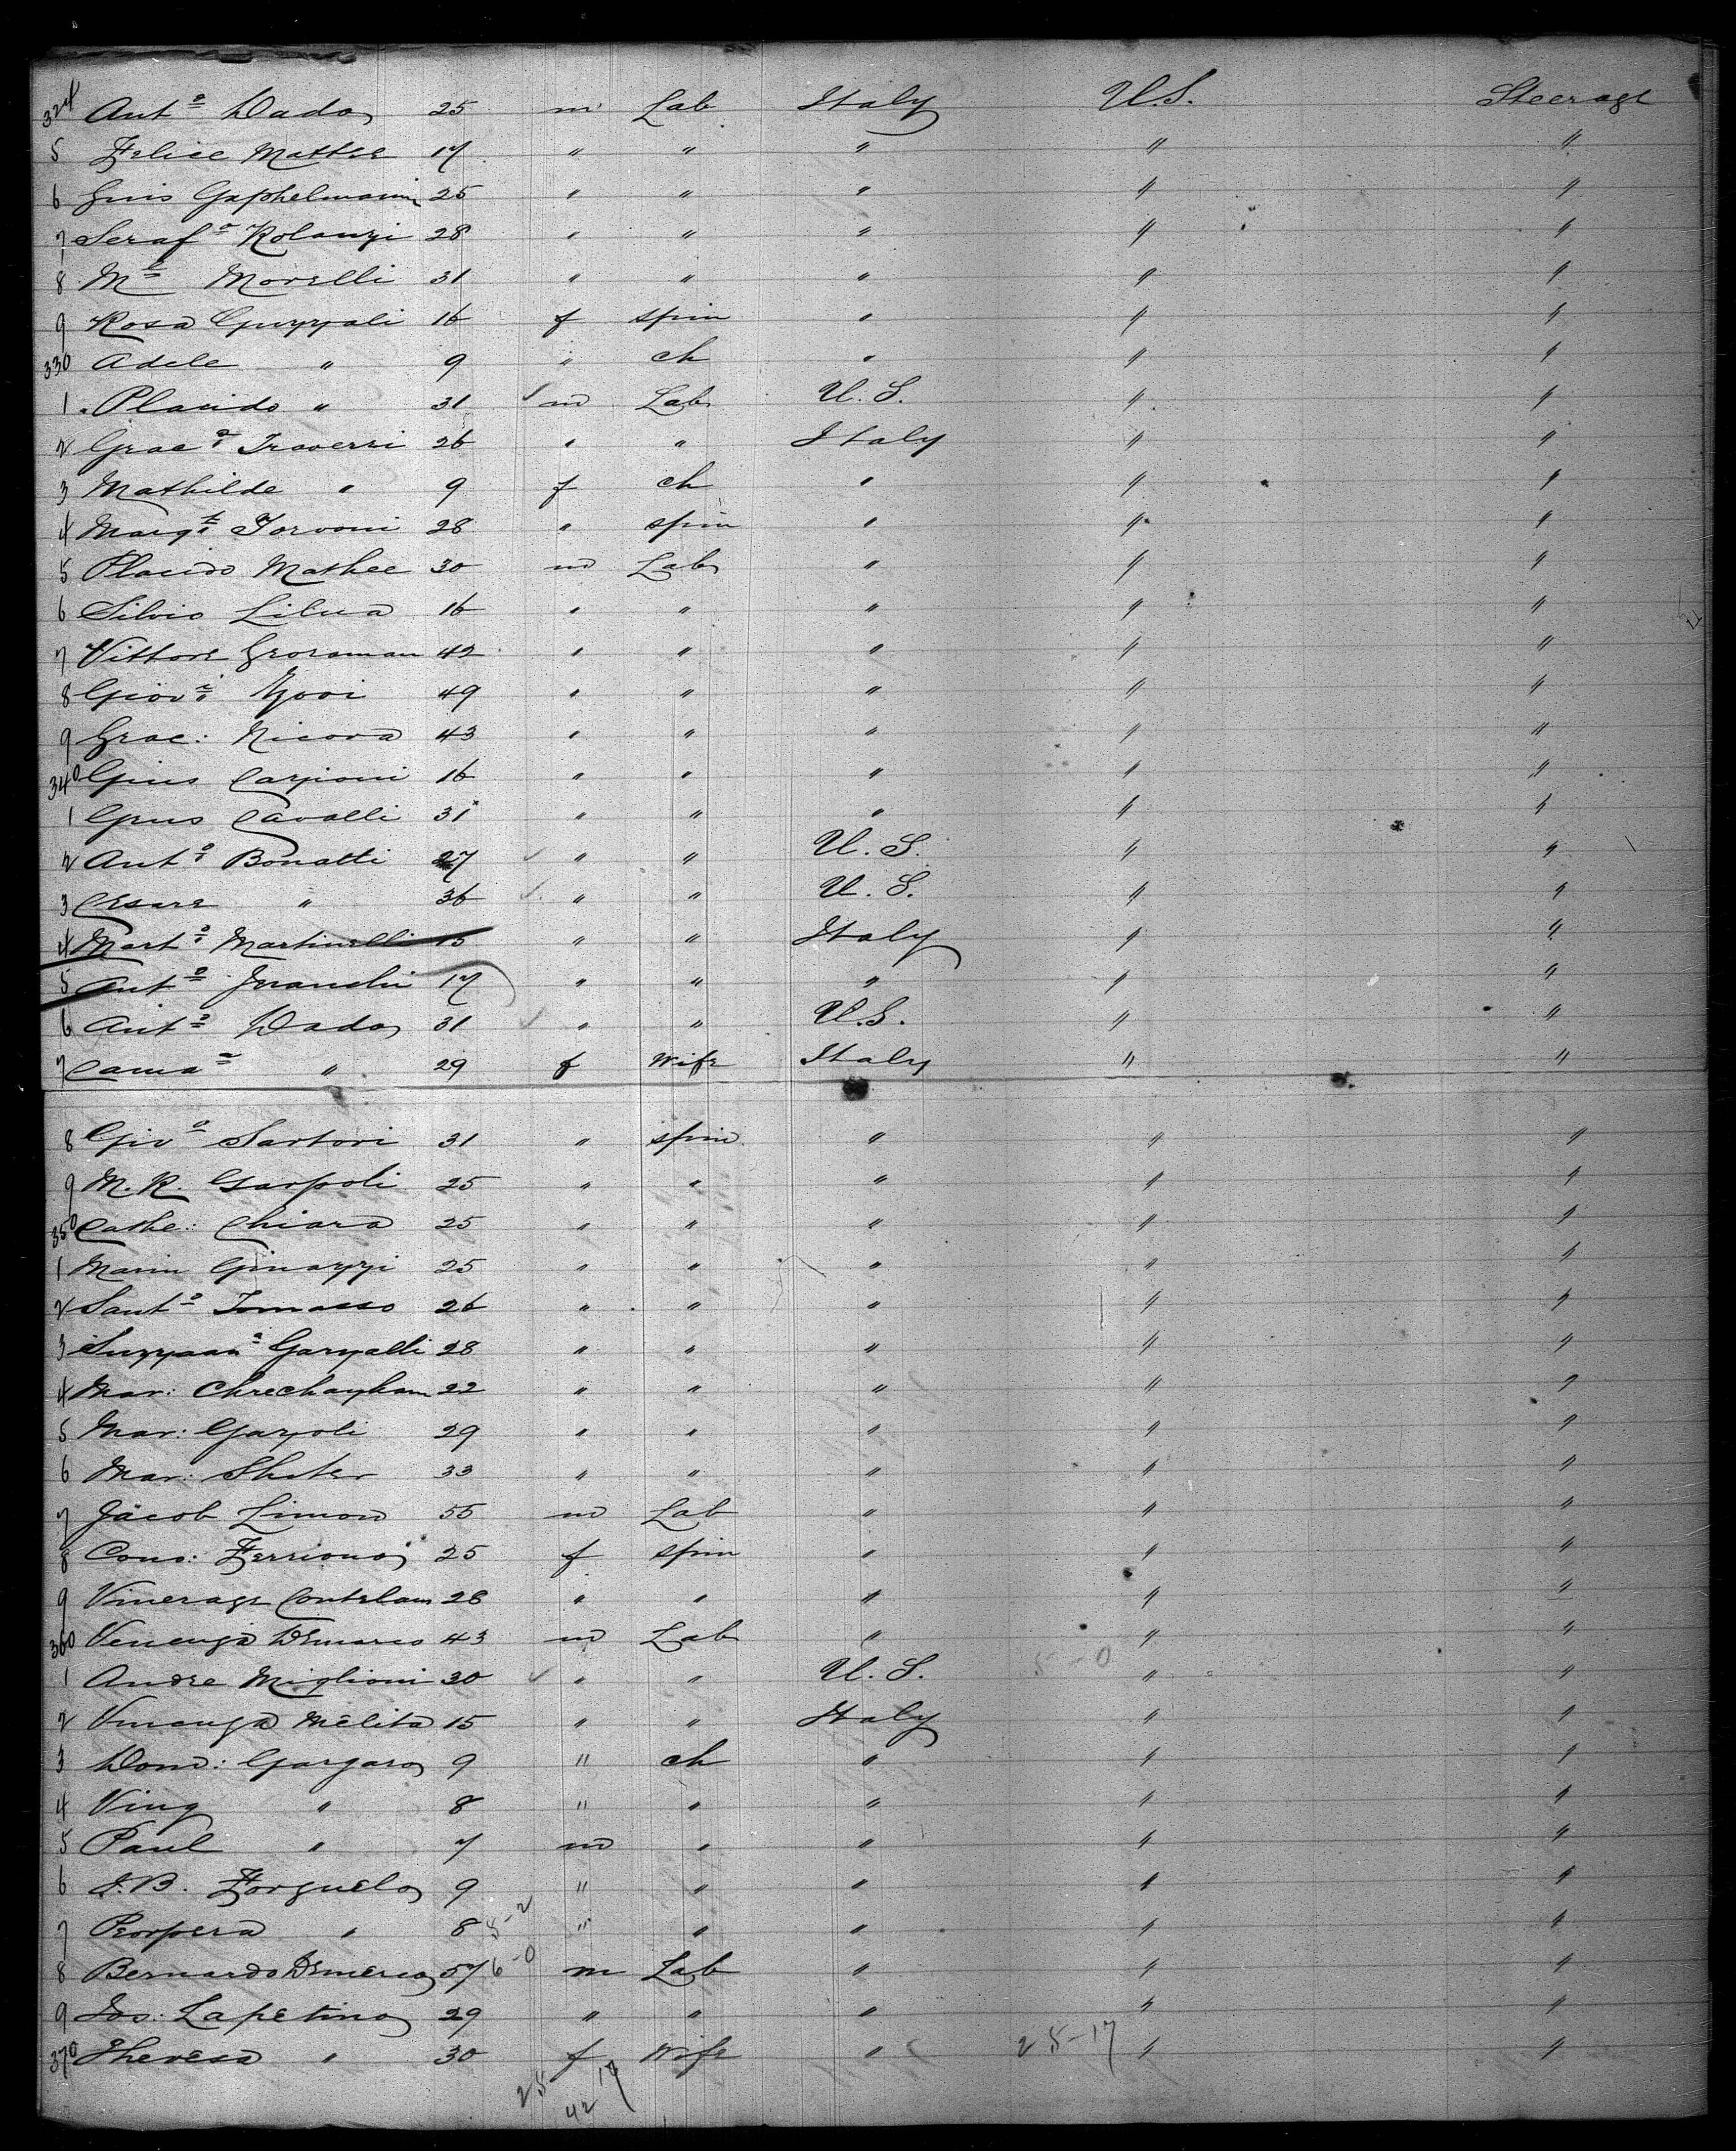 324 Ant° Dado 25 m Lab Italy U.S. Steerage
5 Felice Mattee 17 " " " " "
6 Guis 25 " " " " "
7 Seraf° Rolanzi 28 " " " " "
8 M Morelli 31 " " " " "
9 Rosa Guzzali 16 f spin " " "
330 Adele " 9 " ch " " "
1 Placido " 31 m Lab U.S. " "
2 Grac° Traversi 26 " " Italy " "
3 Mathilde " 9 f ch " " "
4 Marg Torvoni 28 " spin " " "
5 Placido Mathee 30 m Lab " " "
6 Silvio Lilua 16 " " " " "
7 Vittore Grosoman 42 " " " " "
8 Giovi 49 " " " " "
9 Grac: Nicora 43 " " " " "
340 Gius Carzioni 16 " " " " "
1 Gius Cavalli 31 " " " " "
2 Ant° Bonatti 27 " " U.S. " "
3 Cesare " 36 " " U.S. " "
4 Mart° Martinelli 15 " " Italy " "
5 Ant° 17 " " " " "
6 Ant° Dado 31 " " U.S. " "
7 " 29 f Wife Italy " "
8 Giva Sartori 31 " spin " " "
9 M.R. Garpoli 25 " " " " "
350 Cathe: Chiara 25 " " " " "
1 Marin Ginazzi 25 " " " " "
2 Sant° Tomasso 26 " " " " "
3 Garzalli 28 " " " " "
4 Mar: 22 " " " " "
5 Mar: Gazoli 29 " " " " "
6 Mar: Shuter 33 " " " " "
7 Jacob Limon 55 m Lab " " "
8 Cono: 25 f spin " " "
9 28 " " " " "
360 Demarco 43 m Lab " " "
1 Andre Miglioni 30 " " U.S. 5-0 "  "
2 Melita 15 " " Italy " "
3 Dom: Gargaro 9 " ch " " "
4 Ving " 8 " " " " "
5 Paul " 7 m " " " "
6 J.B. Forguelo 9 " " " " "
7 Prospera " 8 5-2 " " " " "
8 Bernardo Demerco 57 6-0 m Lab " " "
9 Jos: Lapetino 29 " " " " "
370 Theresa " 30 f Wife " 25-17 " "
25 17
42